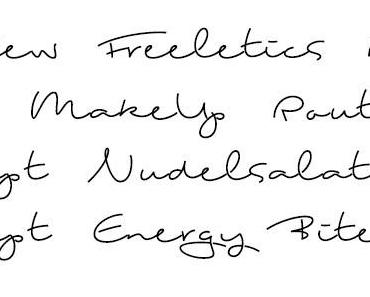 ew Freeletics
MakeUp Rout
pt Nudelsalat
pt Energy Bite